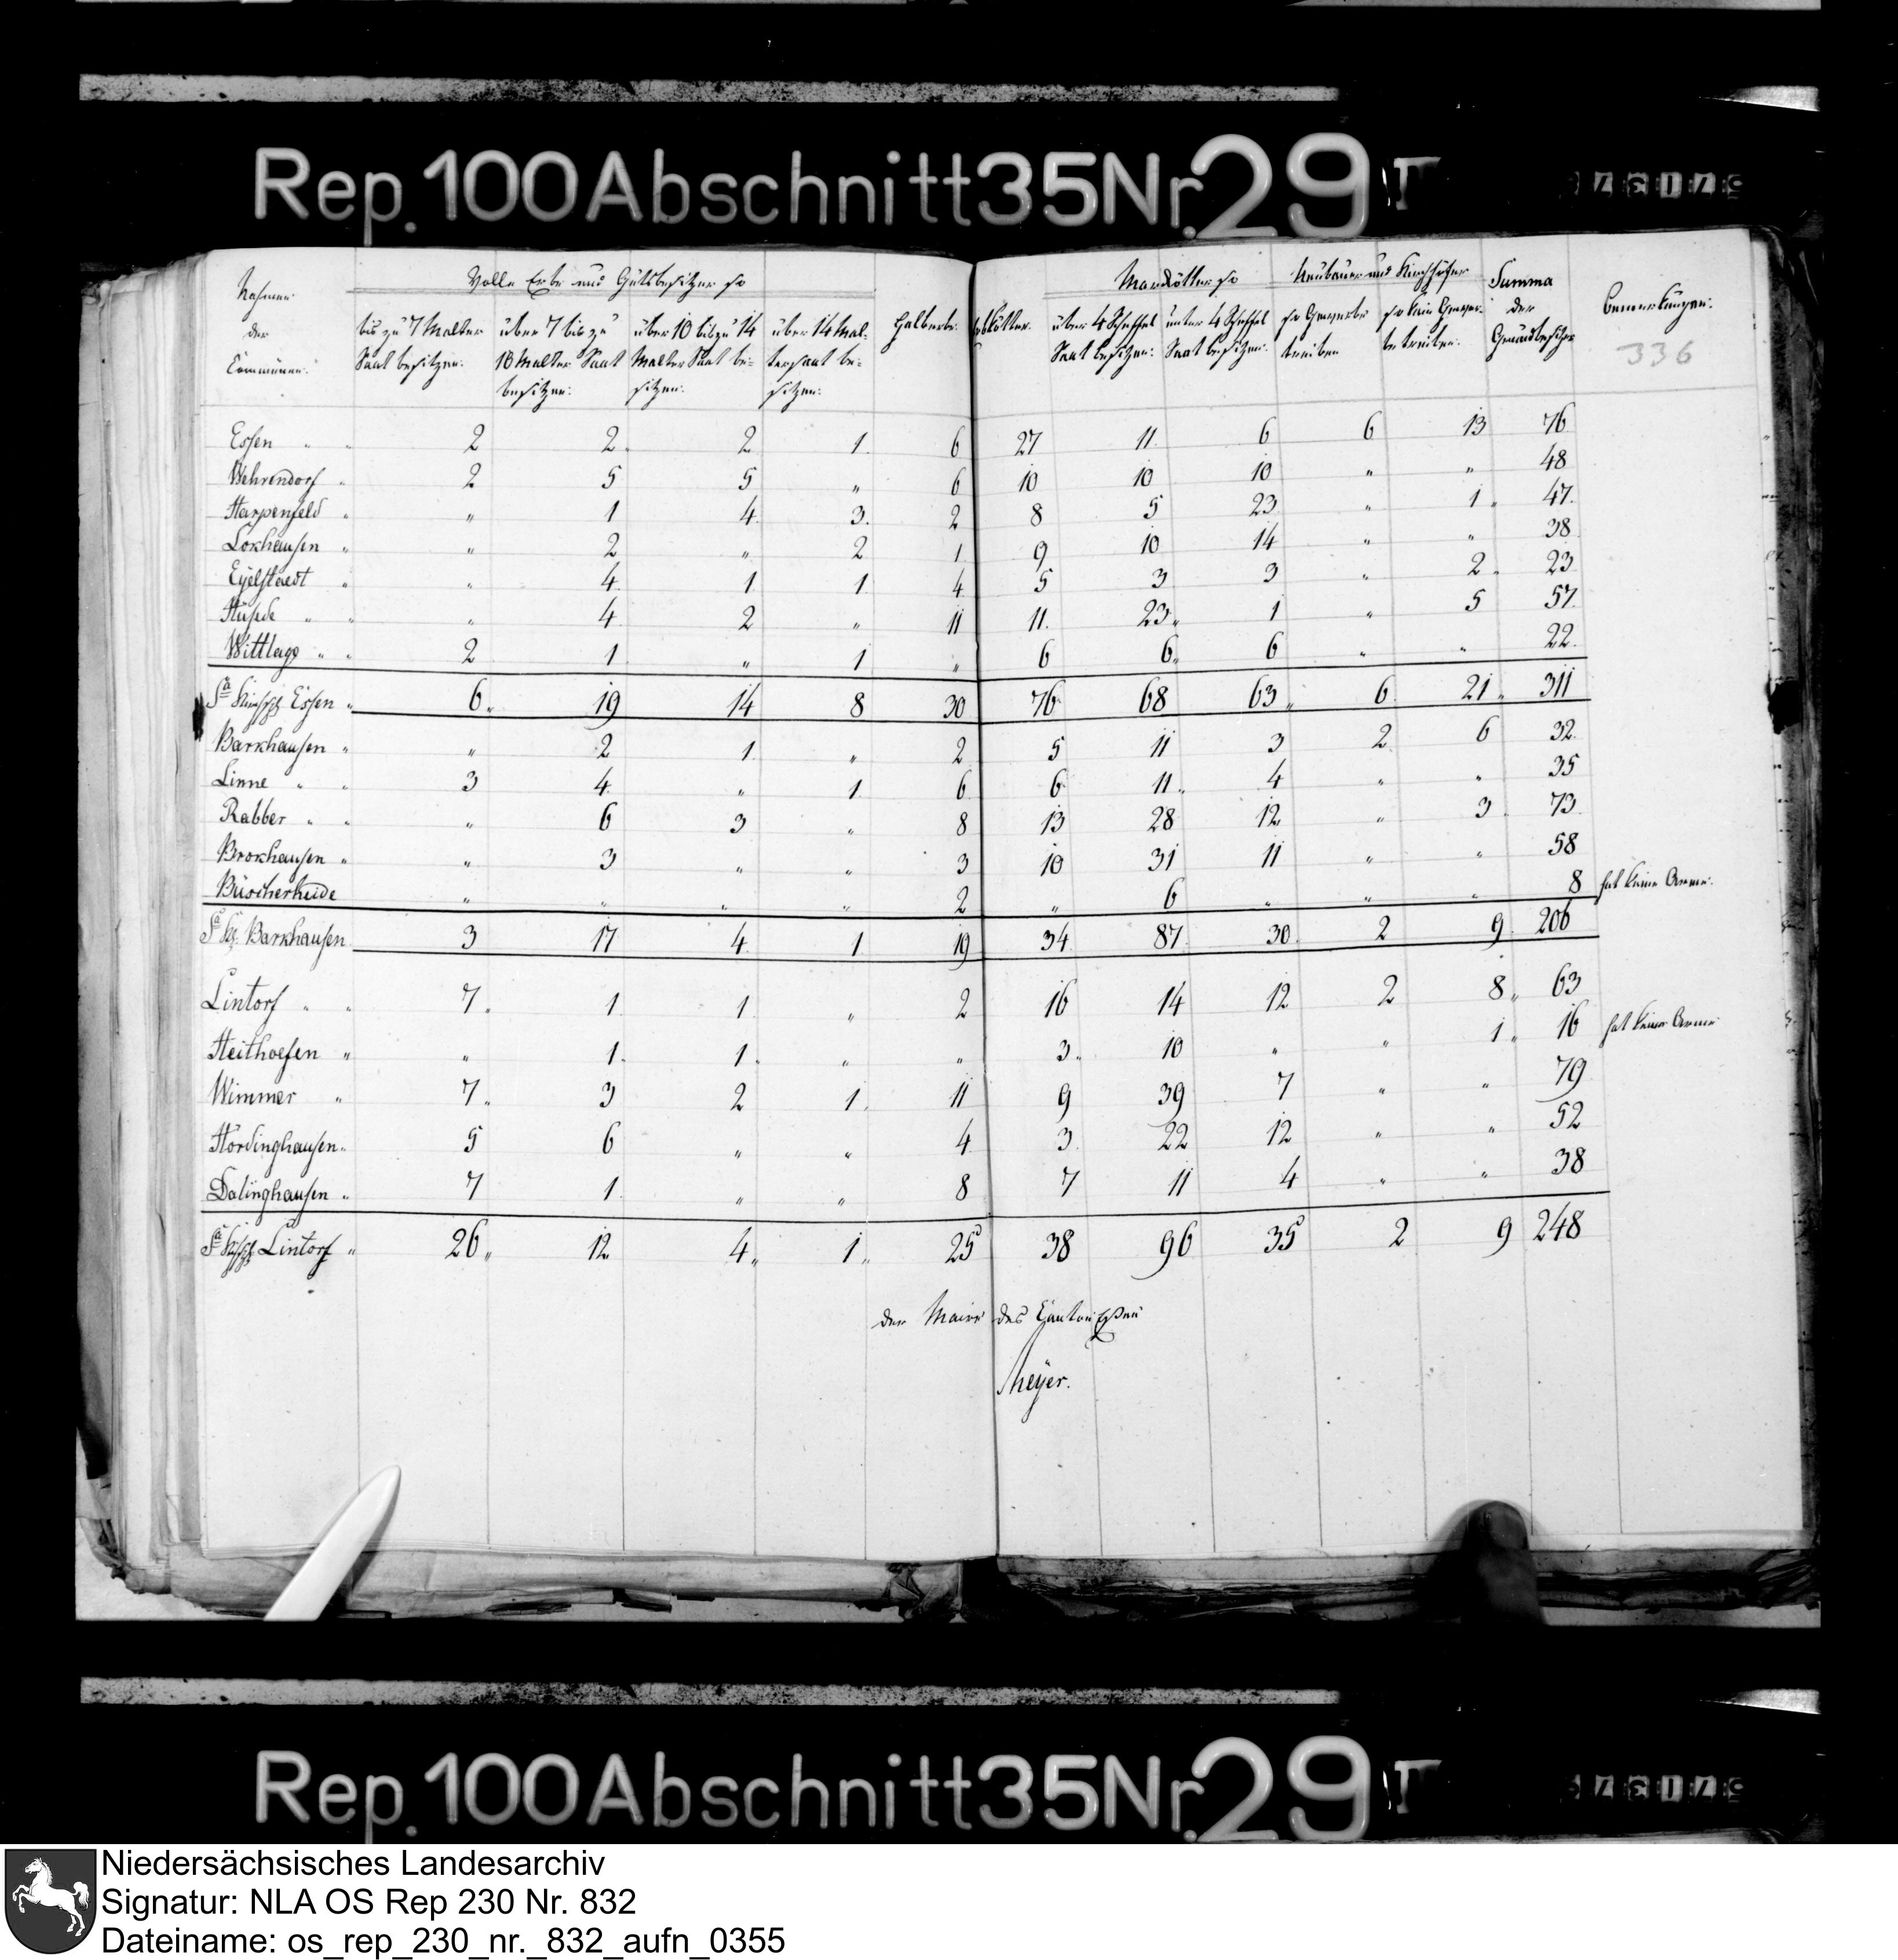 Rep. 100 Abschnitt 35 Nr. 29 I
Nahmen der Communen:
Volle Erbe und Gutsbesitzer so
bis zu 7 Malter Saat besitzen:
über 7 bis zu 10 Malter Saat besitzen:
über 10 bis zu 14 Malter Saat besitzen:
über 14 Maltersaat besitzen:
Halberbe:
Erbkötter.
Markkötter so
über 4 Scheffel Saat besitzen:
unter 4 Scheffel Saat besitzen:
Neubauer und Kirchhöfer
so Gewerbe treiben
so kein Gewerbe treiben.
Summa der Grundbesitzer
Bemerkungen:
336
Essen " " 2 2. 2 1. 6 27 11. 6 6 13 76
Wehrendorf " 2 5 5 " 6 10 10 10 " " 48
Harpenfeld " " 1 4. 3. 2 8 5 23 " 1 " 47.
Lokhausen " " 2 " 2 1 9 10 14 " " 38
Eÿelstaedt " " 4. 1 1 4. 5 3 3 " 2 " 23
Hüsede " " " 4. 2 " 11 11. 23 " 1 " 5 57.
Wittlage " " 2 1 " 1 " 6 6 " 6 " " 22.
Sa Kirchspl Essen " 6 " 19 14 8 30 76 68 63 " 6. 21 " 311
Barkhausen " " 2 1. " 2 5 11 3 2 6 32.
Linne " " 3 4. " 1. 6 6 11. 4 " " 35
Rabber " " " 6 3 " 8 13 28 12 " 3 73.
Brokhausen " " 3 " " 3 10 31 11 " " 58
Büscherheide " " " " 2 " 6 " " " 8 hat keine Arme.
Sa Barkhausen 3 17 4. 1 19 34. 87. 30. 2 9. 206
Lintorf " " 7. 1. 1. " 2 16 14 12 2 8 " 63
Heithoefen " " 1. 1. " " 3. 10 " " 1 " 16 hat keine Arme
Wimmer " 7. 3 2 1. 11 9 39 7 " " 79
Hördinghausen " 5 6 " " 4. 3. 22 12 " " 52
Dalinghausen " 7 1. " " 8 7 11 4 " " 38
Sa Kirchspl Lintorf " 26 " 12 4 " 1 " 25 38 96 35 2 9 248
der Maire des Canton Essen
Meÿer.
Rep. 100 Abschnitt 35 Nr. 29 I
Niedersächsisches Landesarchiv
Signatur: NLA OS Rep 230 Nr. 832
Dateiname: os_rep_230_nr._832_aufn_0355